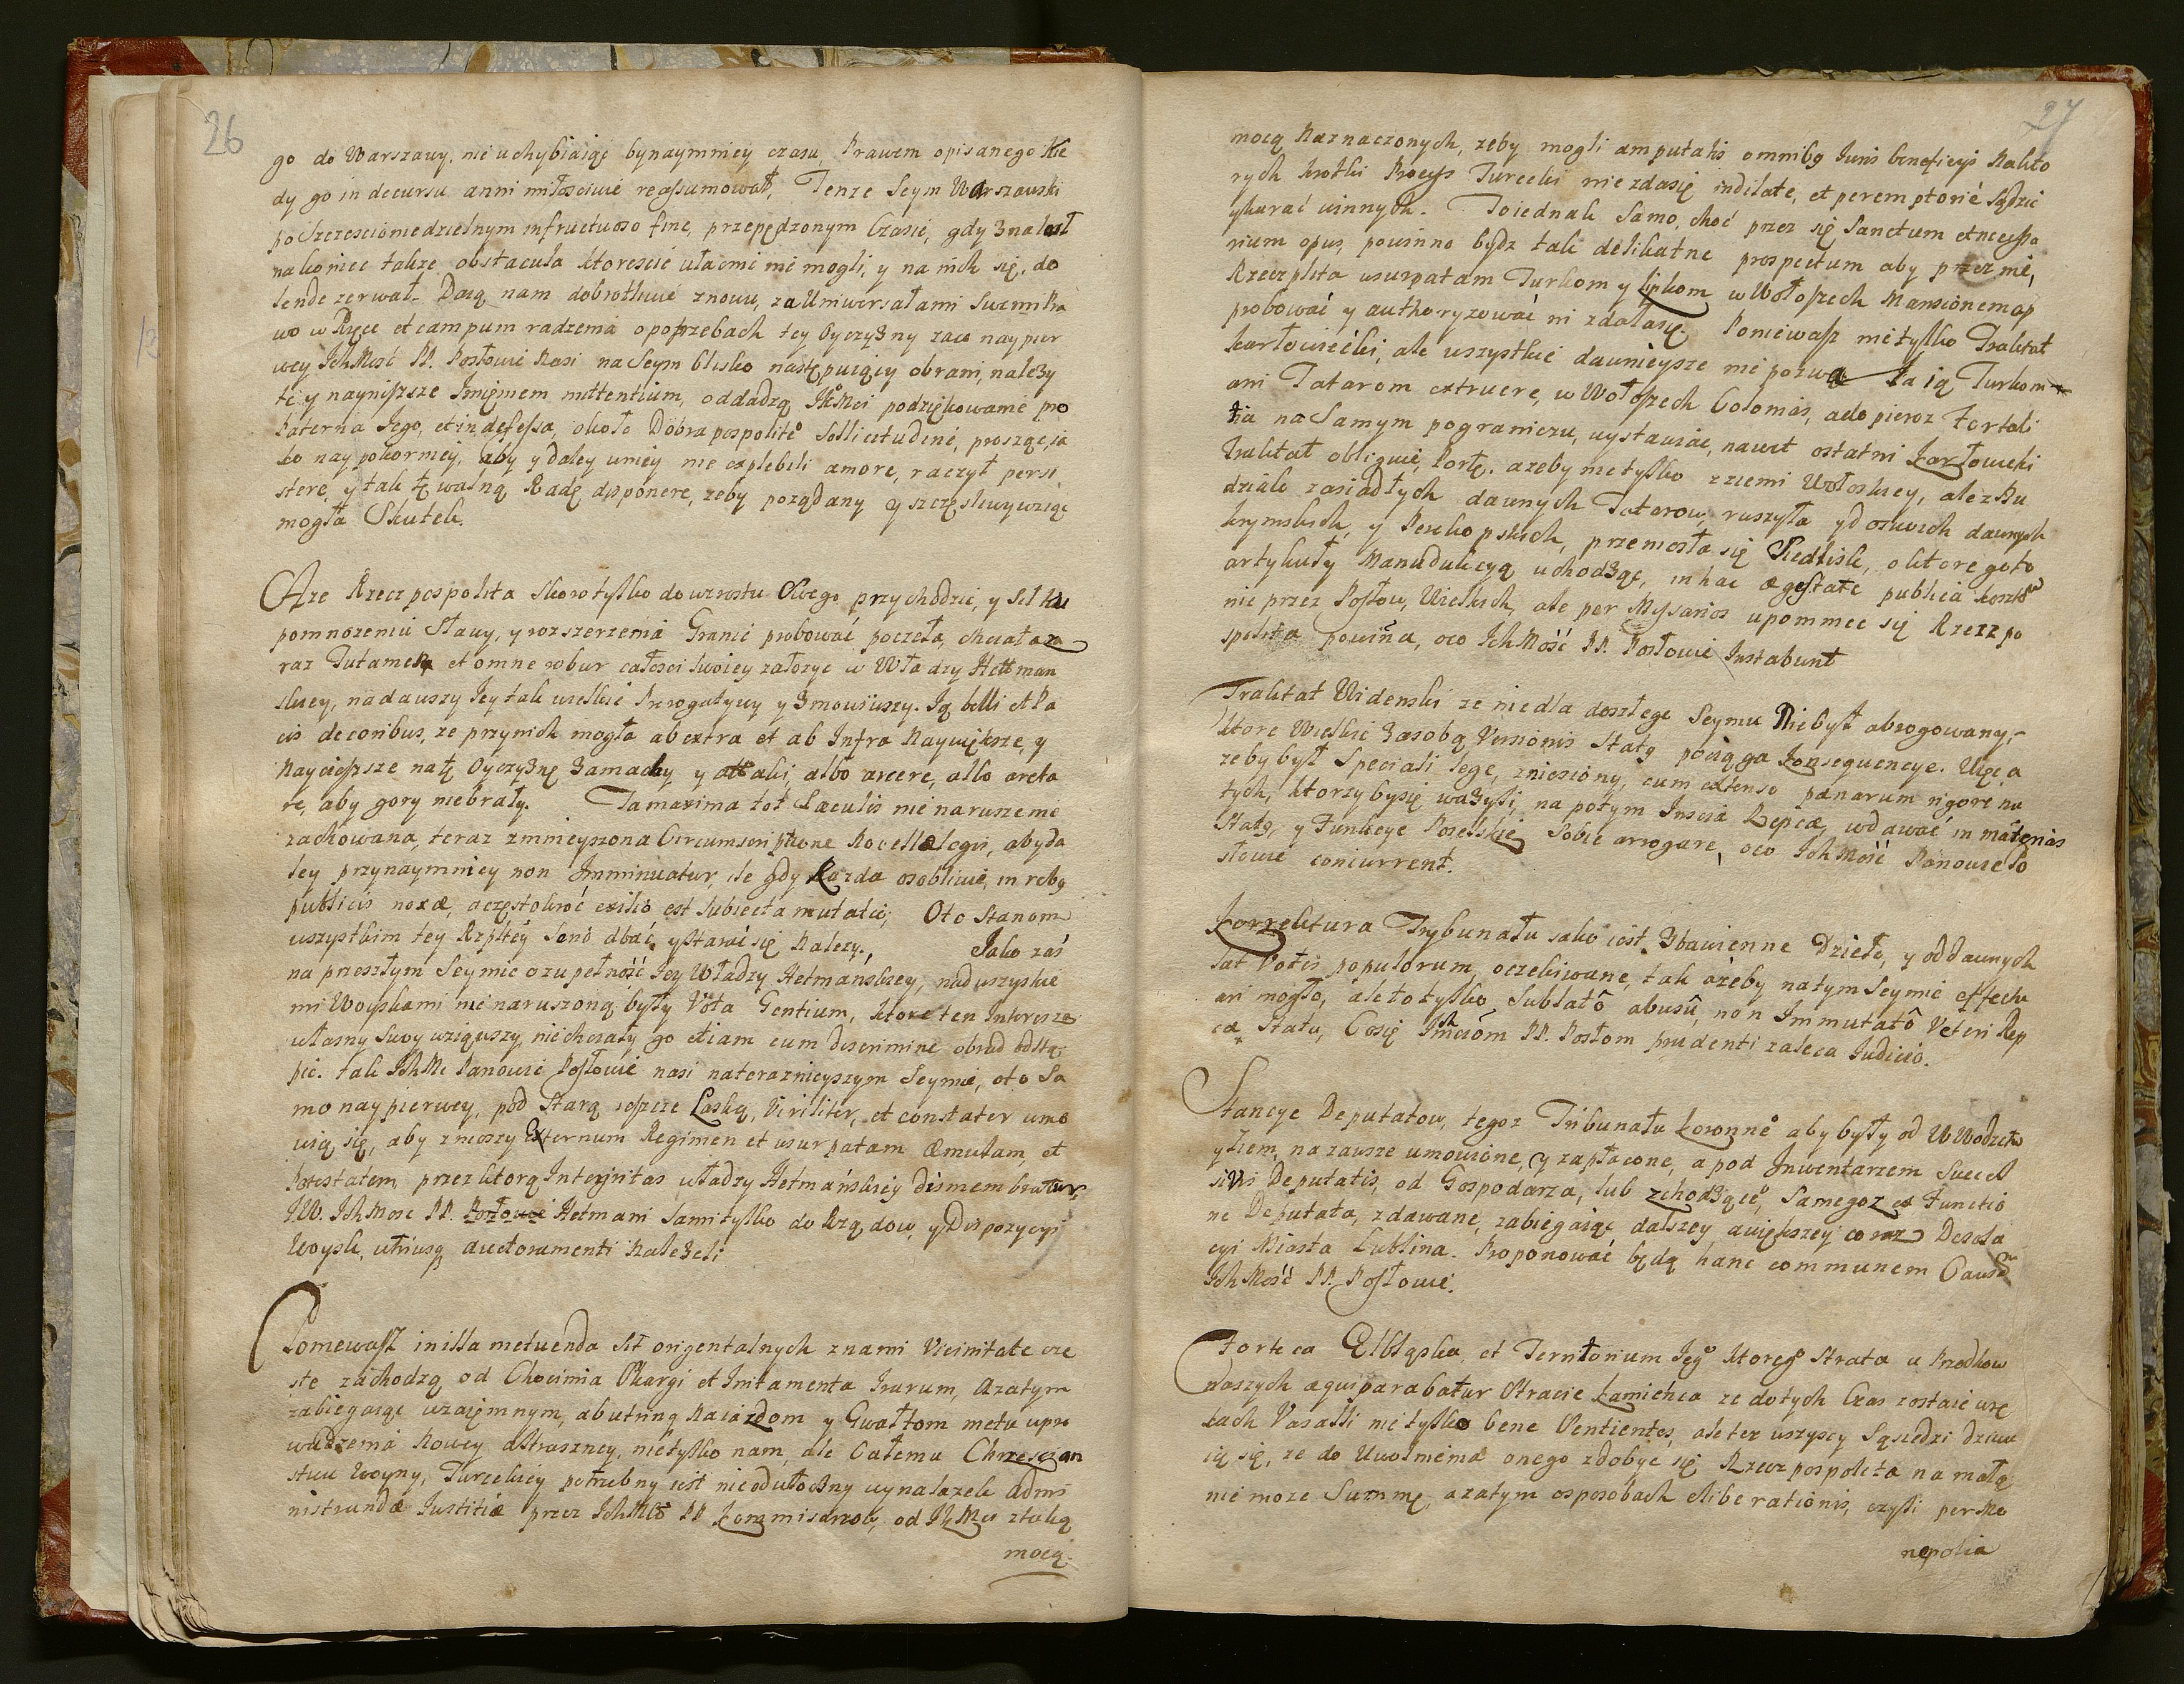 26
go do Warszawy, nie uchybiaiąc bynaymniey czasu Prawem opisanego Kie
dy go in decursu anni miłosciwie reassumował, Tenze Seym Warszawski
po Szesciomiedzielnym infructuoso fine, przepędzonym Czasie, gdy znalazł
nakoniec takze obstacula ktoreście ułacnić nie mogli, y na nich się, do
lende zerwał. Daią nam dobrotliwie znowu, za Uniwersałami Swemi Pra
wo w Ręce et campum radzenia o potrzebach tey Oyczyzny zaco naypier
wey IchMość PP. Posłowie Nasi na Seym blisko następuiący obrani, należy
te y nayniższe Imieniem mittentium, oddadzą IKMci podziękowanie pro
Paterna Jego, et indefessa, około Dobra pospolitego Sollicitudine, prosząc ia
ko naypokorniey, aby y daley umey nie explebili amore, raczył persi
stere, y tak tę walną Radę disponere, zeby porządany y szczęsliwy wziąc
mogła Skutek.
Aże Rzeczpospolita skoro tylko do wzrostu Swego przychodzić, y Sił ku
pomnozeniu Sławy, y rozszerzenia Granic probować poczeła, chciała za
raz Tutamen et omne robur całosci Swoiey założyc w Władzy Hettman
skiey, nadawszy Jey tak wielkie Prerogatywy y zmowiwszy. Ią belli et Pa
cis decoribus, ze przynich mogła ab extra et ab Infra Naywiększe, y
Naycięższe natę Oyczyznę zamachy y attaki, albo arcere, albo arcta
re, aby gory niebrały. Ta maxima tot Sæculis nienaruszenie
zachowana, teraz zmnieyszona Circumscriptione Novellæ legis, aby da
ley przynaymniey non Imminuatur, ile gdy Kazda osobliwie, in rebus
publicis noxæ, aczęstokroć exilio est Subiecta mutatio; Oto Stanom
wszystkim tey Rzpltey Seriò dbać, y Stawić się Należy., Jako zaś
na przeszłym Seymie ozupełność Jey Władzy Hetmanskiey, nad wszyskie
mi Woyskami nienaruszoną były Vota Gentium, ktore ten Interesze
własny Swoy wziąwszy, niechciały go etiam cum discrimine obrad odstą
pić. tak IchMc Panowie Posłowie nasi naterazniejszym Seymie, oto Sa
mo naypierwey, pod Starą ieszcze Laską, Viriliter, et constater umo
wią się, aby zniozszy Externum Regimen et usurpatam æmulam, et
Potestatem, przez ktorą Integritas władzy Hetmańskiey dismembratur,
J.W. IchMosc PP. Posłowie Hetmani Sami tylko do Rządow, y Dispozycyi
Woysk, utriusque auctoramenti Należeli
Poniewasz in illa metuenda Sił orientalnych znami Vicinitate czę
ste zachodzą od Chocimia Skargi et Irritamenta Irarum, Azatym
zabiegaiąc wzaięmnym, abutnną Naiazdom y Gwałtom metu upro
wadzenia Nowey astraszney, nietylko nam, ale Całemu Chrzescian
stwu Woyny, Tureckiey potrzebny iest nieodwłoczny wynalazek Admi
nistrandæ Iustitiæ przez IchMść PP. Kommisarzow, od IKMci ztaką
mocą.
27
mocą Naznaczonych, zeby mogli amputatis omnibus Iuris beneficys Nakto
rych krotki Process Turecki niezdasię indilate, et peremptoriè Sądzić
ykarać winnych. Toiednak Samo, choć przez się Sanctum et necessa
rium opus, powinno bydz tak delikatne prospectum aby przez nie,
Rzeczplta usurpatam Turkom y Lipkom w Wołoszech Mansionem ap
probować y authoryzować ni zdałasię. Poniewasz nietylko Traktat
karłowicki, ale wszystkie dawnieysze nie pozwalaią Turkom
ani Tatarom extruere, w Wołoszech Colonias, adopieroz Fortali
tia na Samym pograniczu, wystawiac, nawet ostatni Karłowicki
Traktat obliguie, Portę, azeby nietylko zziemi Wołoskiey, ale zBu
dziak zasiadłych dawnych Tatarow, ruszyła y do swoich dawnych
krymskich, y Perekopskich, przeniosła się Siedlisk, oktore goto
artykuły Manudukcyą uchodząc, in hac ægestate publica kosztow
nie przez Posłow, Wielkich, ale per Missarios upomniec się Rzeczpo
spolita powinna, oco IchMość PP. Posłowie Instabunt
Traktat Widenski ze niedla doszłego Seymu Niebył abrogowany,
ktore Wielkie zasobą Versionis Status pociąga Konsequencye. Więc a
zeby był Speciali lege, zniesiony, cum extenso pœnarum rigore na
tych, ktorzybysię wazyli, na potym Inscia Repca, wdawać in materias
Status, y Funkcye Poselskie, Sobie arrogare, oco IchMość Panowie Po
słowie concurrent.
Korrektura Trybunału iako iest Zbawienne Dzieło, y oddawnych
lat Votis populorum, oczekiwane, tak azeby natym Seymie effectu
ari mogło, ale to tylko Sublatô abusû, non Immutatô Veteri Rep
cæ Statu, Cosię Imciom PP. Posłom prudenti zaleca Iudicio.
Stancye Deputatow, tegoz Tribunału Koronnego aby były od WWodztw
y Ziem, nazawsze umowione, y zapłacone, apod Inwentarzem Succes
sivis Deputatis, od Gospodarza, lub zchodzącego, Samegoz ex Functio
ne Deputata, zdawane, zabiegaiąc dalszey, awiększey coraz Desola
cyi Miasta Lublina. Proponować będą hanc communem Causam
IchMość PP. Posłowie.
Forteca Elbląska, et Territorium Jego ktorego Strata u Przodkow
Naszych æquiparabatur Stracie Kamieńca ze dotych Czas zostaie wrę
kach Vasalli nietylko bene Sentientes, ale tez wszyscy Sąsiedzi dziwu
ią się, ze do Uwolnienia onego zdobyć się Rzeczpospolita na małą
nie moze Summę, azatym osposobach eliberationis, czyli per Mo
nopolia